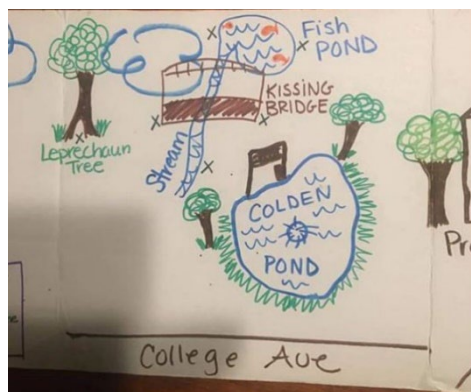 Fish
POND
KISSING
BRIDGE
Leprechaun
Tree
Stream
COLDEN
POND
College Ave